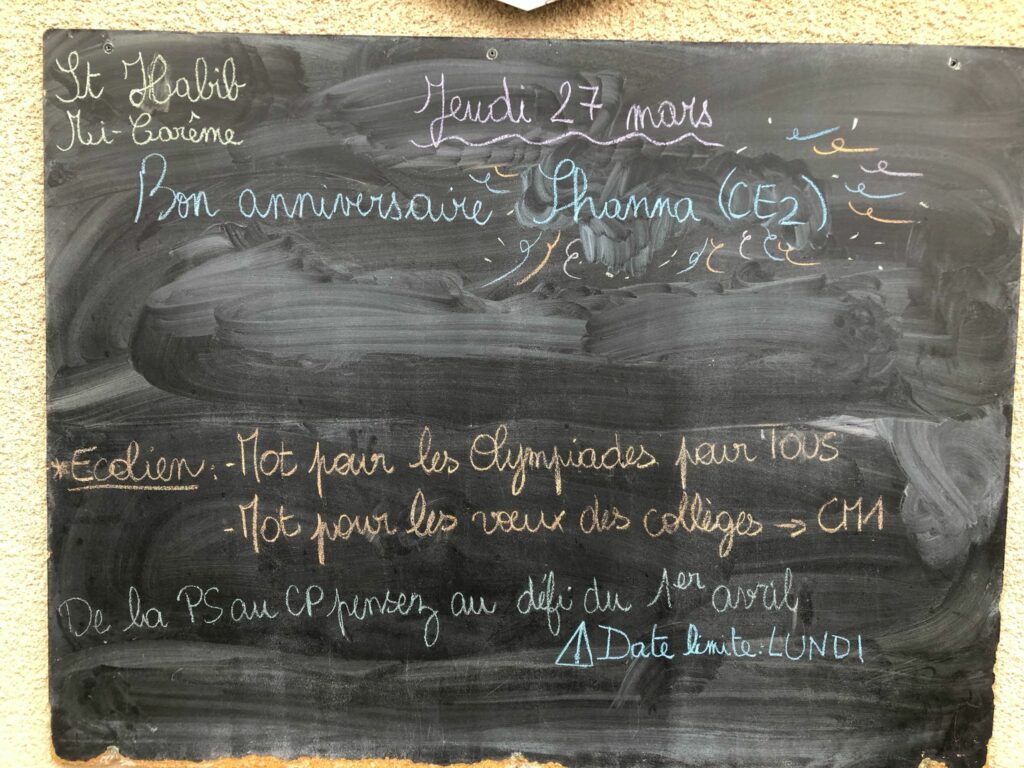 St Habib
Mi-Carême
Jeudi 27 mars
Bon anniversaire Shanna (CE2)
*Ecolien : - Mot pour les Olympiades pour TOUS
- Mot pour les vœux des collèges → CM1
De la PS au CP pensez au défi du 1er avril
⚠ Date limite : LUNDI